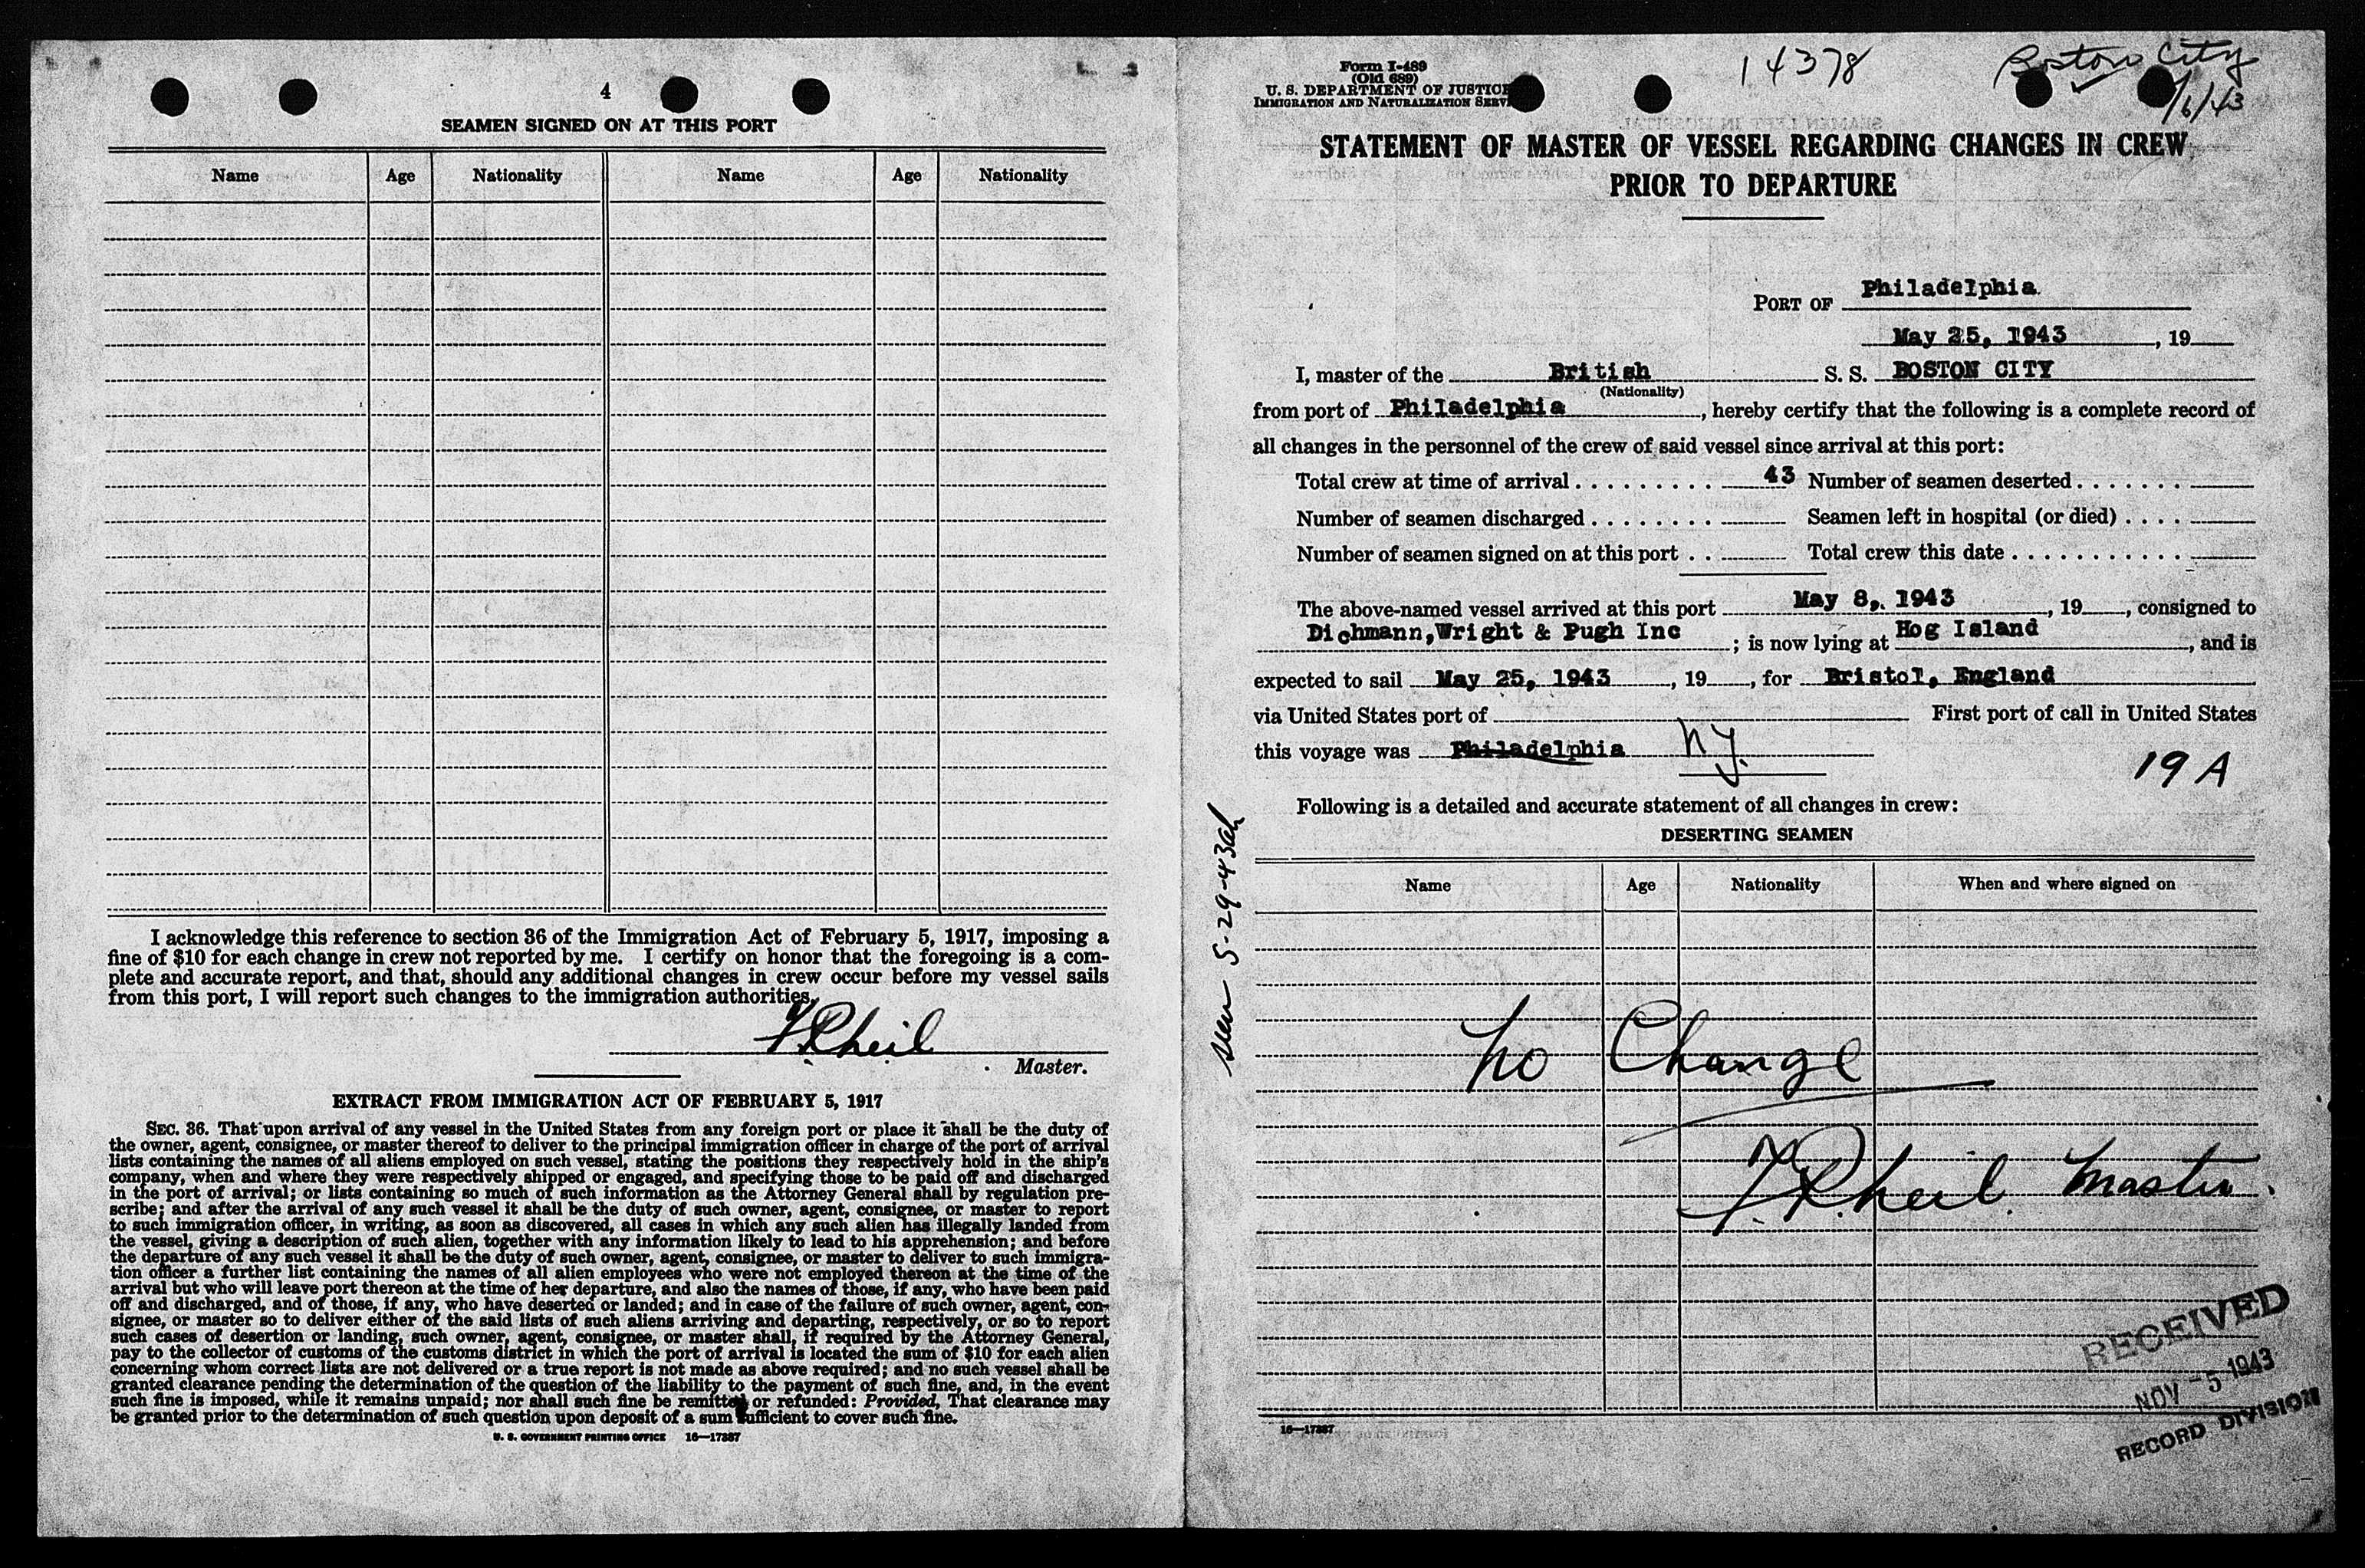 4
SEAMEN SIGNED ON AT THIS PORT
Name Age Nationality Name Age Nationality
I acknowledge this reference to section 36 of the Immigration Act of February 5, 1917, imposing a
fine of $10 for each change in crew not reported by me. I certify on honor that the foregoing is a com-
plete and accurate report, and that, should any additional changes in crew occur before my vessel sails
from this port, I will report such changes to the immigration authorities.
Master.
EXTRACT FROM IMMIGRATION ACT OF FEBRUARY 5, 1917
SEC. 36. That upon arrival of any vessel in the United States from any foreign port or place it shall be the duty of
the owner, agent, consignee, or master thereof to deliver to the principal immigration officer in charge of the port of arrival
lists containing the names of all aliens employed on such vessel, stating the positions they respectively hold in the ship's
company, when and where they were respectively shipped or engaged, and specifying those to be paid off and discharged
in the port of arrival; or lists containing so much of such information as the Attorney General shall by regulation pre-
scribe; and after the arrival of any such vessel it shall be the duty of such owner, agent, consignee, or master to report
to such immigration officer, in writing, as soon as discovered, all cases in which any such alien has illegally landed from
the vessel, giving a description of such alien, together with any information likely to lead to his apprehension; and before
the departure of any such vessel it shall be the duty of such owner, agent, consignee, or master to deliver to such immigra-
tion officer a further list containing the names of all alien employees who were not employed thereon at the time of the
arrival but who will leave port thereon at the time of her departure, and also the names of those, if any, who have been paid
off and discharged, and of those, if any, who have deserted or landed; and in case of the failure of such owner, agent, con-
signee, or master so to deliver either of the said lists of such aliens arriving and departing, respectively, or so to report
such cases of desertion or landing, such owner, agent, consignee, or master shall, if required by the Attorney General,
pay to the collector of customs of the customs district in which the port of arrival is located the sum of $10 for each alien
concerning whom correct lists are not delivered or a true report is not made as above required; and no such vessel shall be
granted clearance pending the determination of the question of the liability to the payment of such fine, and, in the event
such fine is imposed, while it remains unpaid; nor shall such fine be remitted or refunded: Provided, That clearance may
be granted prior to the determination of such question upon deposit of a sum sufficient to cover such fine.
U. S. GOVERNMENT PRINTING OFFICE 16—17887
Form I-489
(Old 689)
U. S. DEPARTMENT OF JUSTICE
IMMIGRATION AND NATURALIZATION
14378
Boston City
/6/43
STATEMENT OF MASTER OF VESSEL REGARDING CHANGES IN CREW
PRIOR TO DEPARTURE
PORT OF Philadelphia
May 25, 1943, 19
I, master of the British S. S. BOSTON CITY
(Nationality)
from port of Philadelphia, hereby certify that the following is a complete record of
all changes in the personnel of the crew of said vessel since arrival at this port:
Total crew at time of arrival . . . . . . . . . 43 Number of seamen deserted . . . . . . .
Number of seamen discharged . . . . . . . . Seamen left in hospital (or died) . . . .
Number of seamen signed on at this port . . Total crew this date . . . . . . . . . . .
The above-named vessel arrived at this port May 8, 1943, 19, consigned to
Dichmann,Wright & Pugh Inc; is now lying at Hog Island, and is
expected to sail May 25, 1943, 19, for Bristol, England
via United States port of First port of call in United States
this voyage was Philadelphia NY.
19 A
Following is a detailed and accurate statement of all changes in crew:
DESERTING SEAMEN
Name Age Nationality When and where signed on
seen 5-29-43
No Change
Master.
RECEIVED
NOV -5 1943
RECORD DIVISION
16—17887